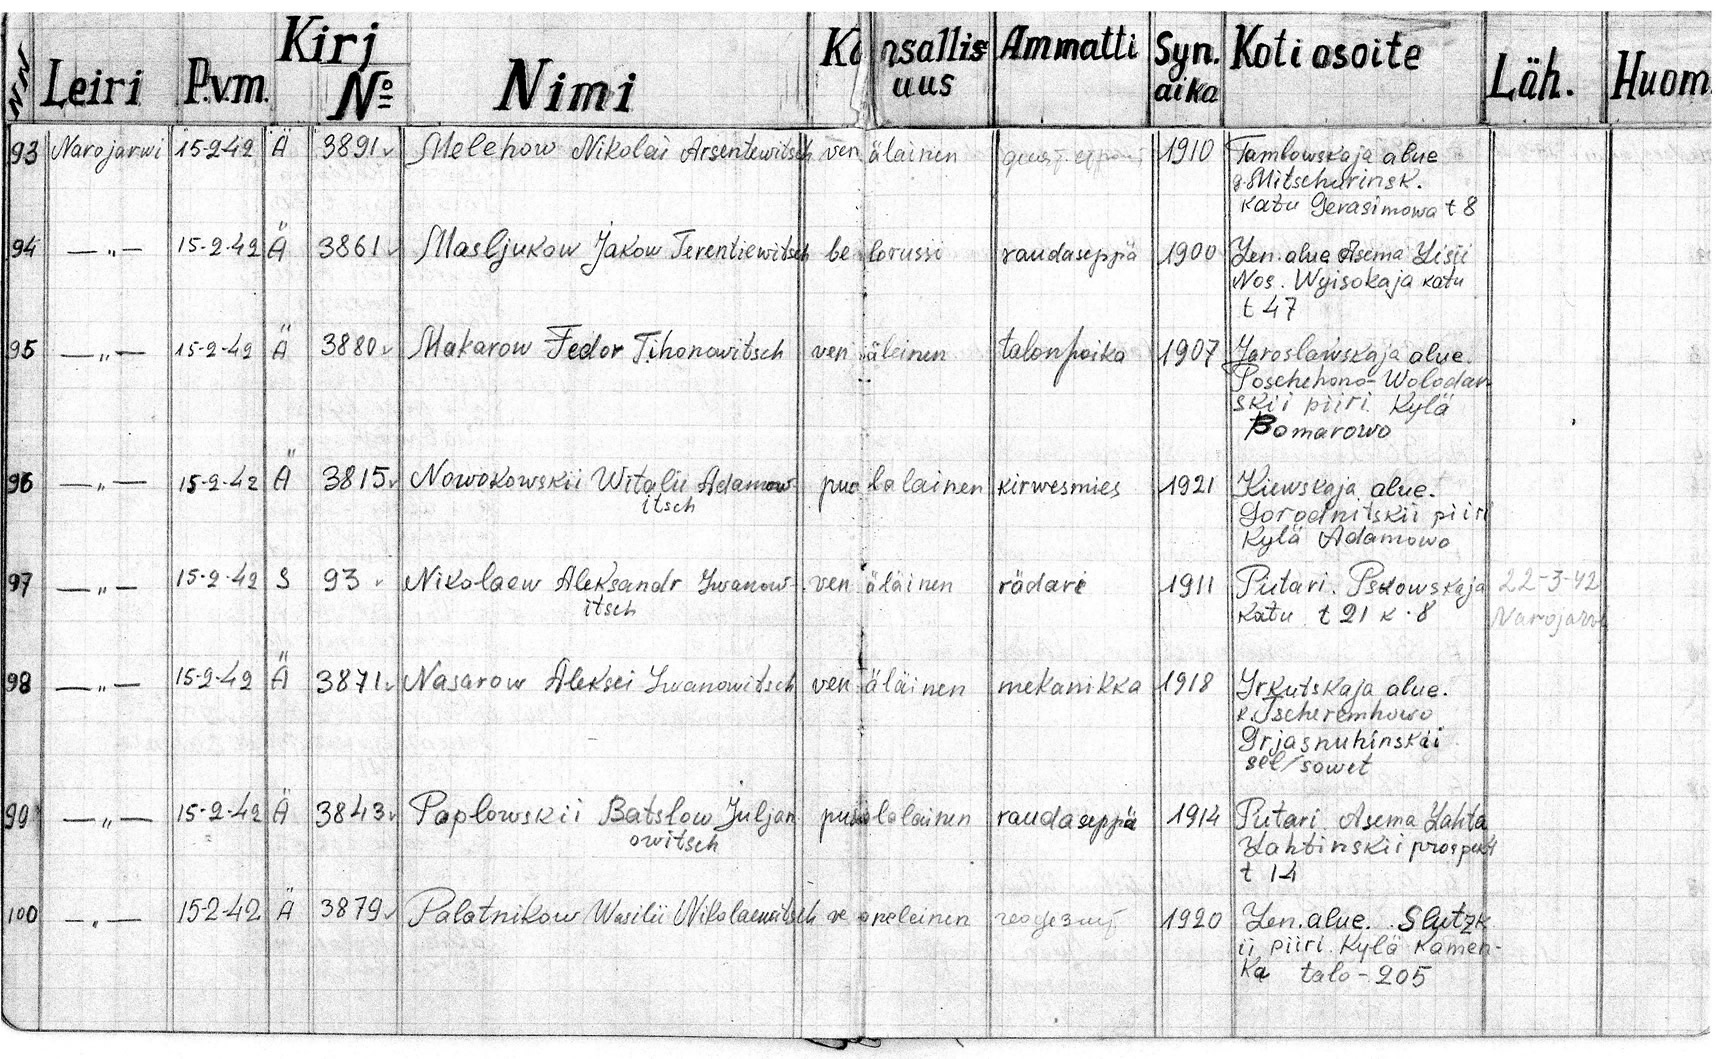 NN Leiri P.v.m. Kirj № Nimi Kansallisuus Ammatti Syn. aika Kotiosoite Läh. Huom.
93 Narojarwi 15-2-42 Ä 3891 Melehow Nikolai Arsentewitsch venäläinen 1910 Tamlowskaja alue
g. Mitschurinsk.
katu Gerasimowa t 8
94 —"— 15-2-42 Ä 3861 Masljukow Jakow Terentiewitsch belorussi raudaseppä 1900 Len. alue Asema Lisii
Nos. Wyisokaja katu
t 47
95 —"— 15-2-42 Ä 3880 Makarow Fedor Tihonowitsch venäleinen talonpoika 1907 Jaroslawskaja alue.
Poschehono-Wolodar
skii piiri. Kylä
Bomarowo
96 —"— 15-2-42 Ä 3815 Nowokowskii Witalii Adamow- puolalainen kirwesmies 1921 Kiewskaja alue.
itsch Gorodnitskii piiri
Kylä Adamowo
97 —"— 15-2-42 S 93 Nikolaew Aleksandr Iwanow- venäläinen rädäri 1911 Piitari. Pskowskaja 22-3-42
itsch katu t 21 k. 8 Narojarwi
98 —"— 15-2-42 Ä 3871 Nasarow Aleksei Iwanowitsch venäläinen mekanikka 1918 Irkutskaja alue.
Tscheremhowo
Grjasnuhinskii
sel/sowet
99 —"— 15-2-42 Ä 3843 Paplowskii Batslow Juljan puolalainen raudaseppä 1914 Piitari Asema Lahta
owitsch Lahtinskii prospekt
t 14
100 —"— 15-2-42 Ä 3879 Palatnikow Wasilii Nikolaewitsch 1920 Len. alue. Slutzk
ii piiri. Kylä Kamen-
ka talo-205